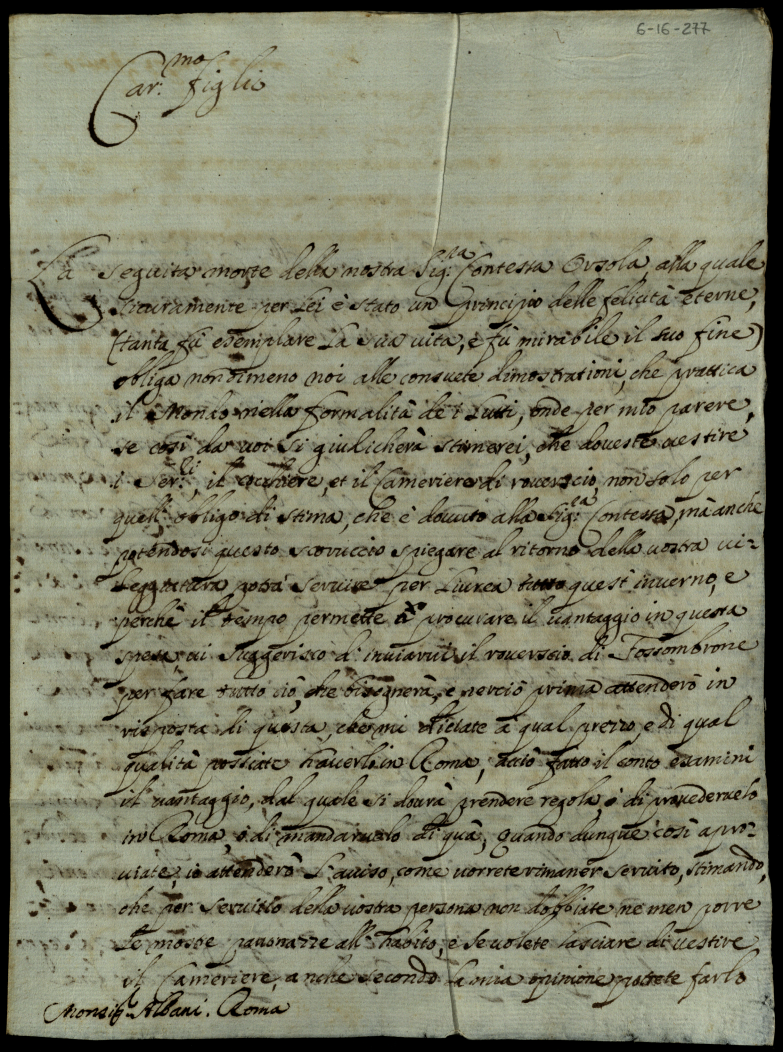 6-16-277
Car.mo figlio
La seguita morte della nostra Sig.ra Contessa Orsola, alla quale
sicuramente per lei è stato un principio delle felicità eterne,
(tanta fù esemplare la sua vita, e fù mirabile il suo fine)
obliga nondimeno noi alle consuete dimostrationi, che prattica
il Mondo nella formalità de i lutti, onde per mio parere,
se così da voi si giudicherà stimerei, che doveste vestire
i Ser.ri, il Cocchiere, et il Cameriere di roverscio, non solo per
quell'obligo di stima, che è dovuto alla Sig.ra Contessa, mà anche
potendosi questo scoruccio spiegare al ritorno della vostra vi-
leggiatura potrà servire per livrea tutto quest'inverno, e
perche il tempo permette di procurare il vantaggio in questa
spesa, vi suggerisco d'inviarvi il roverscio di Fossombrone
per fare tutto ciò, che bisognerà, e perciò prima attenderò in
risposta di questa, che mi diciate à qual prezzo, e di qual
qualità possiate haverlo in Roma, acciò fatto il conto esamini
il vantaggio, dal quale si dovrà prendere regola ò di provedervelo
in Roma, ò di mandarvelo di quà, Quando dunque così apro-
viate, io attenderò l'aviso, come vorrete rimaner servito, stimando,
che per servitio della vostra persona non dobbiate ne men porre
le mostre pavonazze all'habito, e se volete lasciare di vestire
il Cameriere, anche secondo la mia opinione potrete farlo
Monsig.r Albani. Roma